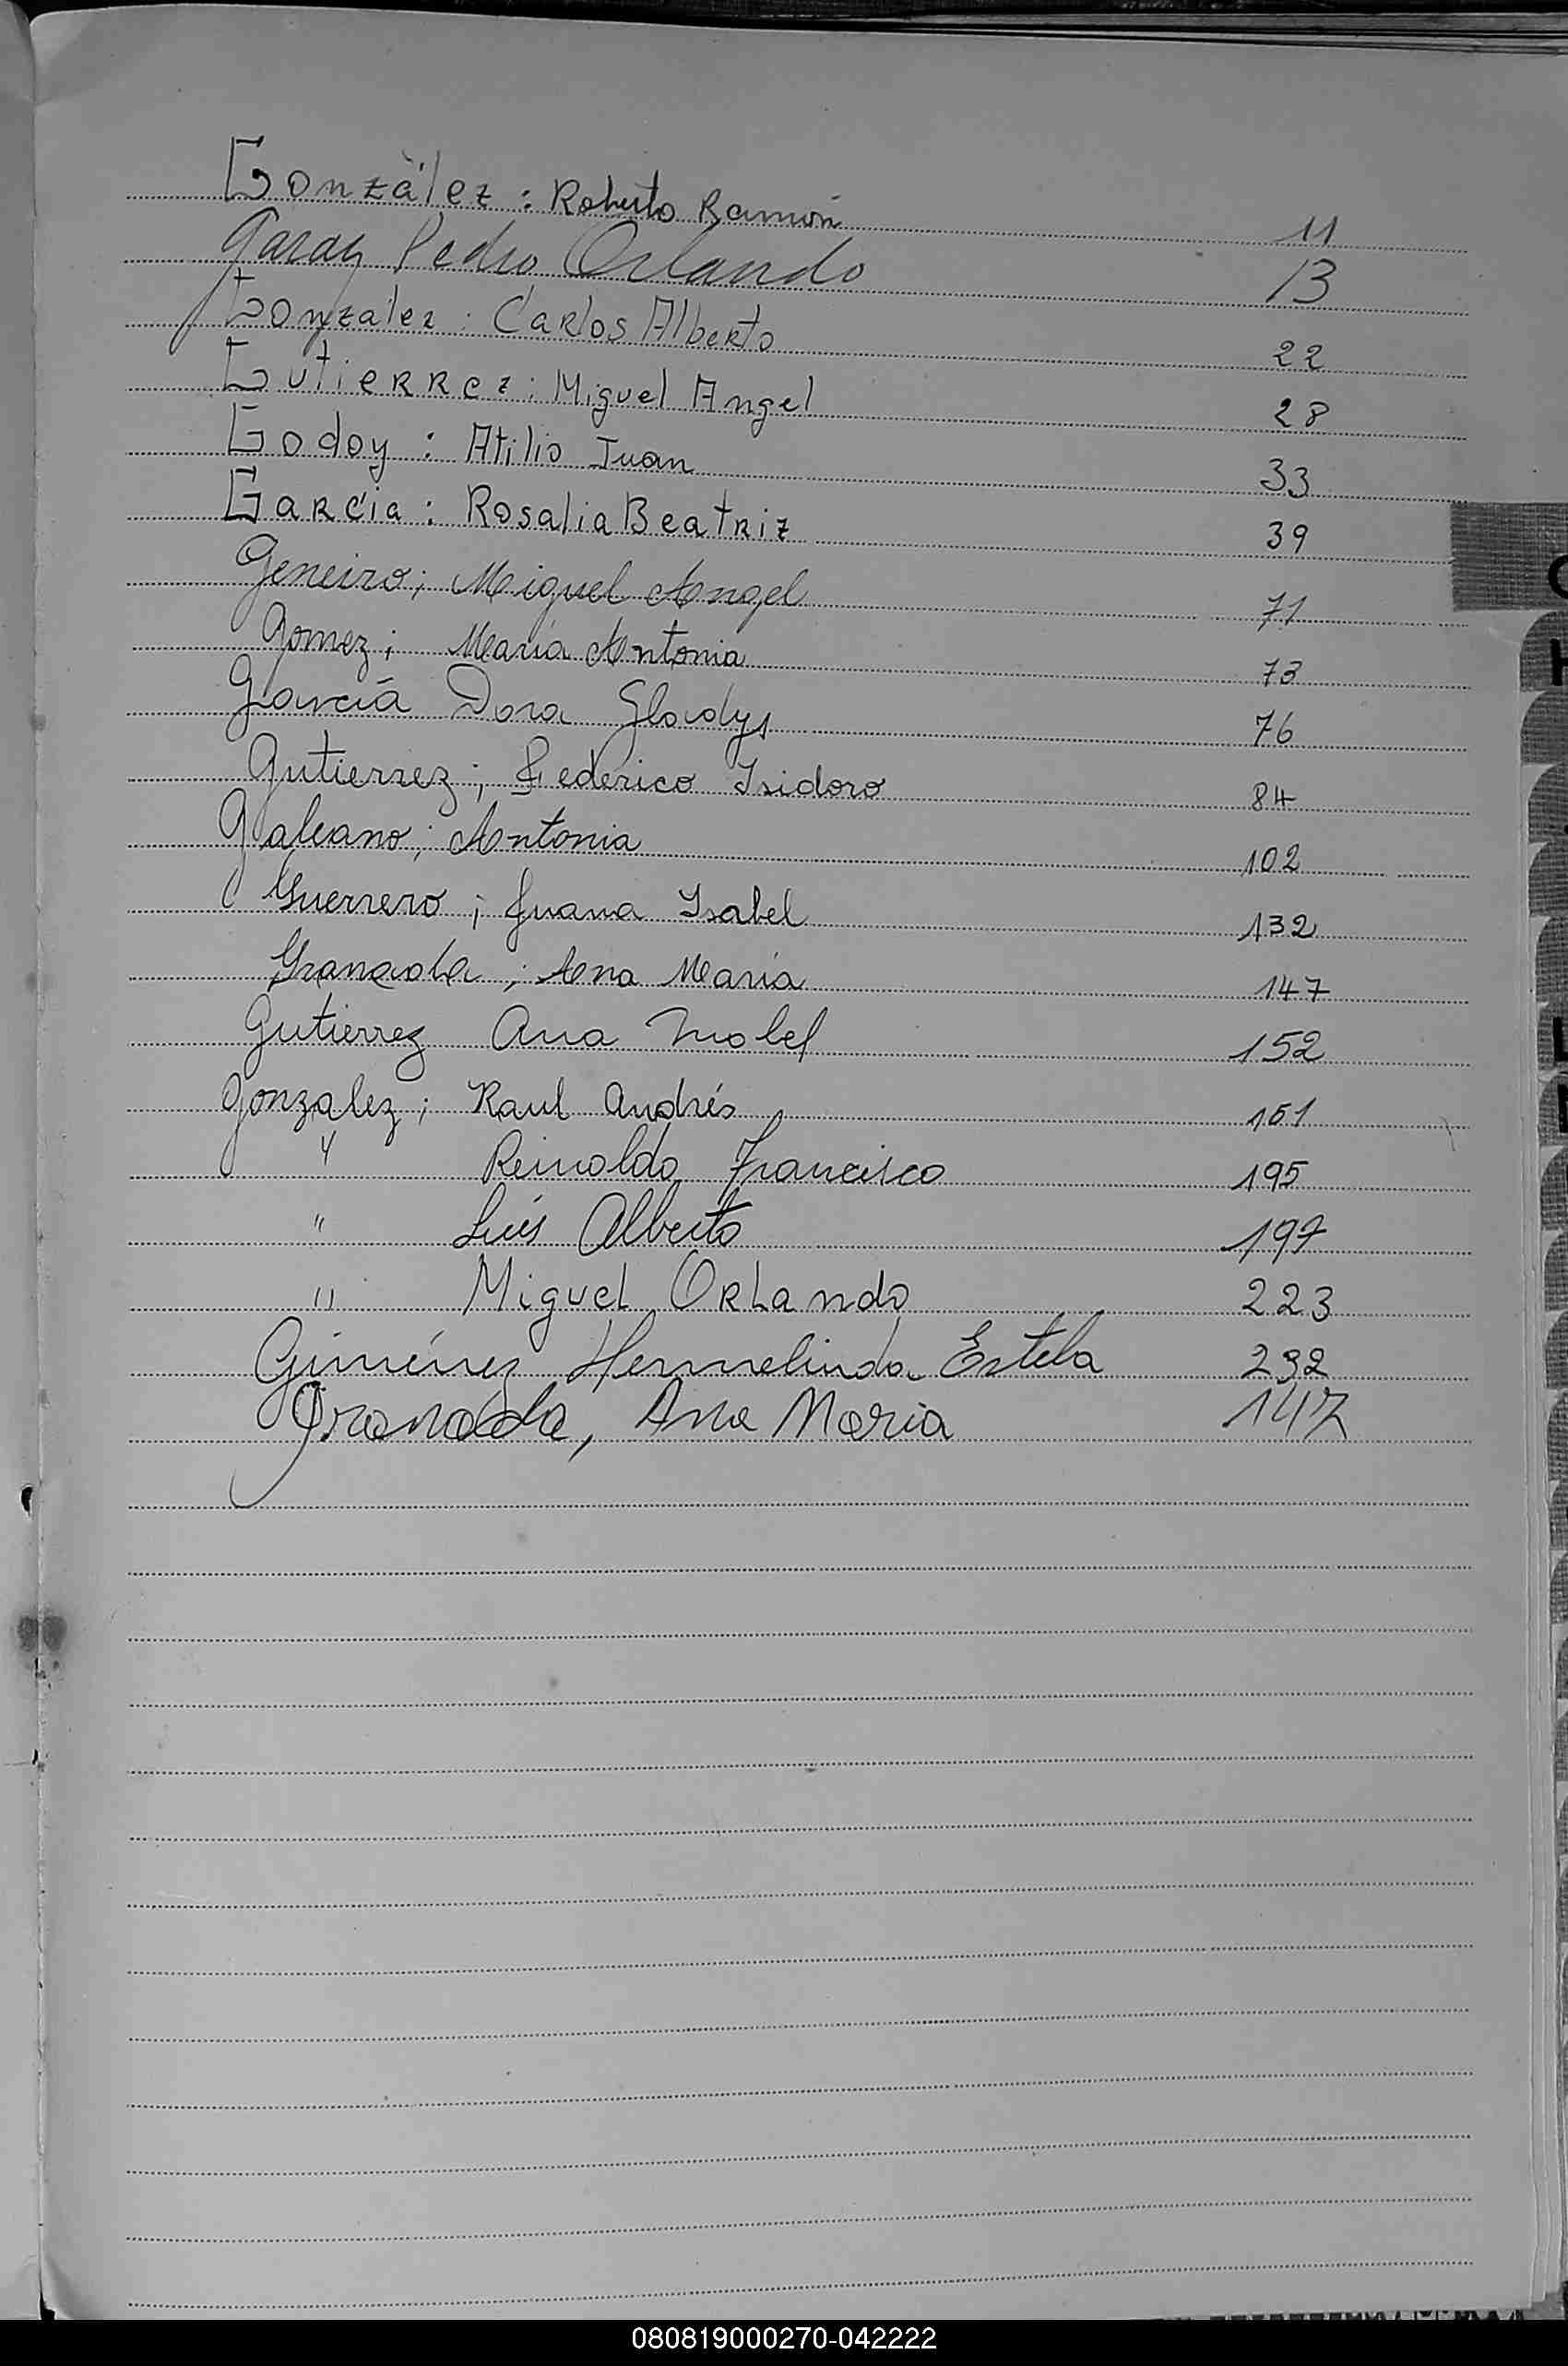 González : Roberto Ramón 11
Garay Pedro Orlando 13
Gonzalez : Carlos Alberto 22
Gutierrez : Miguel Angel 28
Godoy : Atilio Juan 33
García : Rosalia Beatriz 39
Geneiro ; Miguel Angel 71
Gomez ; María Antonia 73
García Dora Gladys 76
Gutierrez ; Federico Isidoro 84
Galeano ; Antonia 102
Guerrero ; Juana Isabel 132
Granada ; Ana María 147
Gutierrez Ana Mabel 152
Gonzalez ; Raul Andrés 151
" Reinaldo Francisco 195
" Luis Alberto 197
" Miguel Orlando 223
Giménez Hermelinda Estela 232
Granada, Ana Maria 147
G
H
L
080819000270-042222